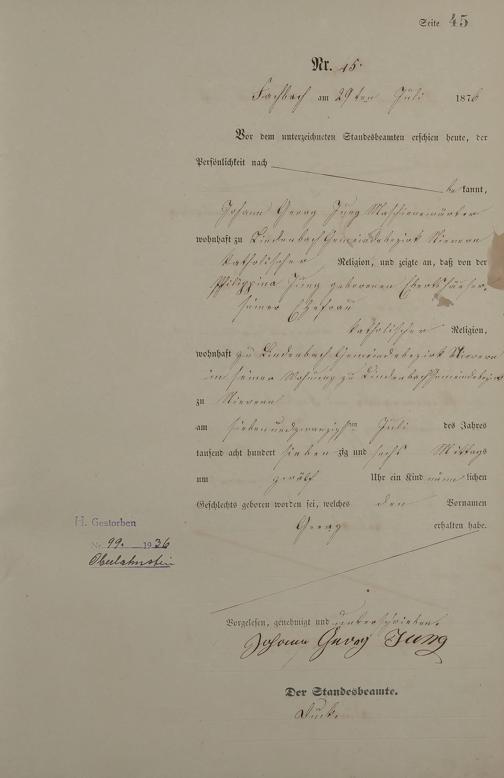 Seite 45
Nr. 45.
Fachbach am 29ten Juli 1876
Vor dem unterzeichneten Standesbeamten erschien heute, der
Persönlichkeit nach
be kannt,
Johann Georg Jung Maschienenwärter
wohnhaft zu Lindenbach Gemeindebezirk Nievern
katholischer Religion, und zeigte an, daß von der
Philippina Jung geborenen
seiner Ehefrau
katholischer Religion,
wohnhaft zu Lindenbach Gemeindebezirk Nievern
in seiner Wohnung zu Lindenbach Gemeindebezirk
zu Nievern
am siebenundzwanzigsten Juli des Jahres
tausend acht hundert sieben zig und sechs Mittags
um zwölf Uhr ein Kind männ lichen
Geschlechts geboren worden sei, welches den Vornamen
Georg erhalten habe.
H. Gestorben
Nr. 99. 1936
Oberlahnstein
Vorgelesen, genehmigt und unterschrieben
Johann Georg Jung
Der Standesbeamte.